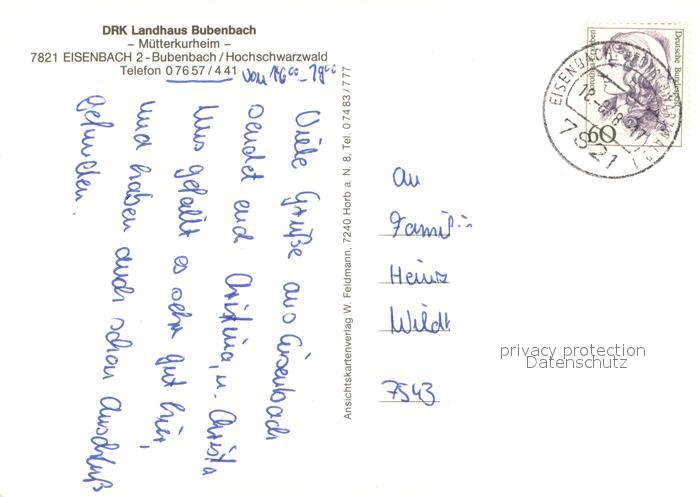 DRK Landhaus Bubenbach
– Mütterkurheim –
7821 EISENBACH 2-Bubenbach/Hochschwarzwald
Telefon 07657/441 von 16⁰⁰-19⁰⁰
Viele Grüße aus Eisenbach
sendet euch Christina u. Christa
Uns gefällt es sehr gut hier,
und haben auch schon Anschluß
gefunden.
Ansichtskartenverlag W. Feldmann, 7240 Horb a. N. 8, Tel. 07483/777
Deutsche Bundespost
60
EISENBACH
7821
An
Famil
Heinz
Wildt
7543
privacy protection
Datenschutz